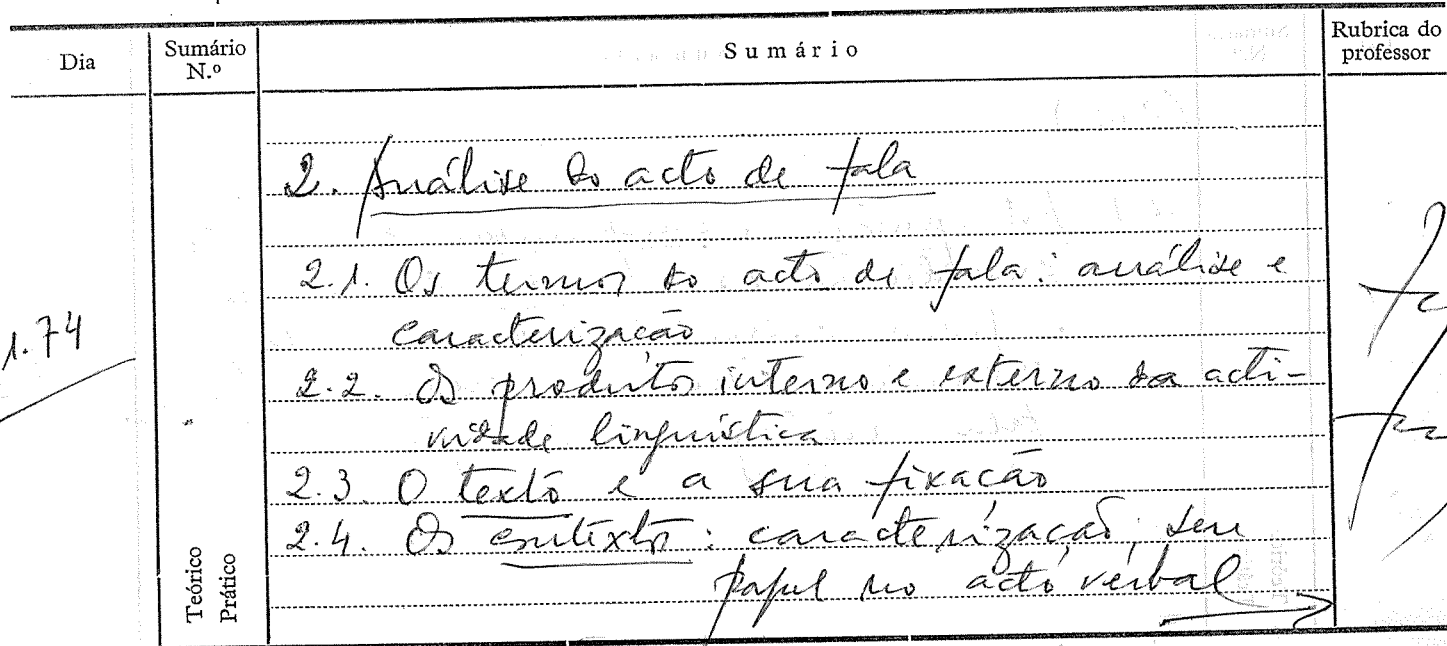 Dia
Sumário N.º
Sumário
Rubrica do professor
2. Análise do acto de fala
2.1. Os termos do acto de fala: análise e
caracterização
1.74
2.2. Os produtos interno e externo da acti-
vidade linguística
2.3. O texto e a sua fixação
2.4. Os contextos: caracterização, seu
papel no acto verbal
Teórico
Prático